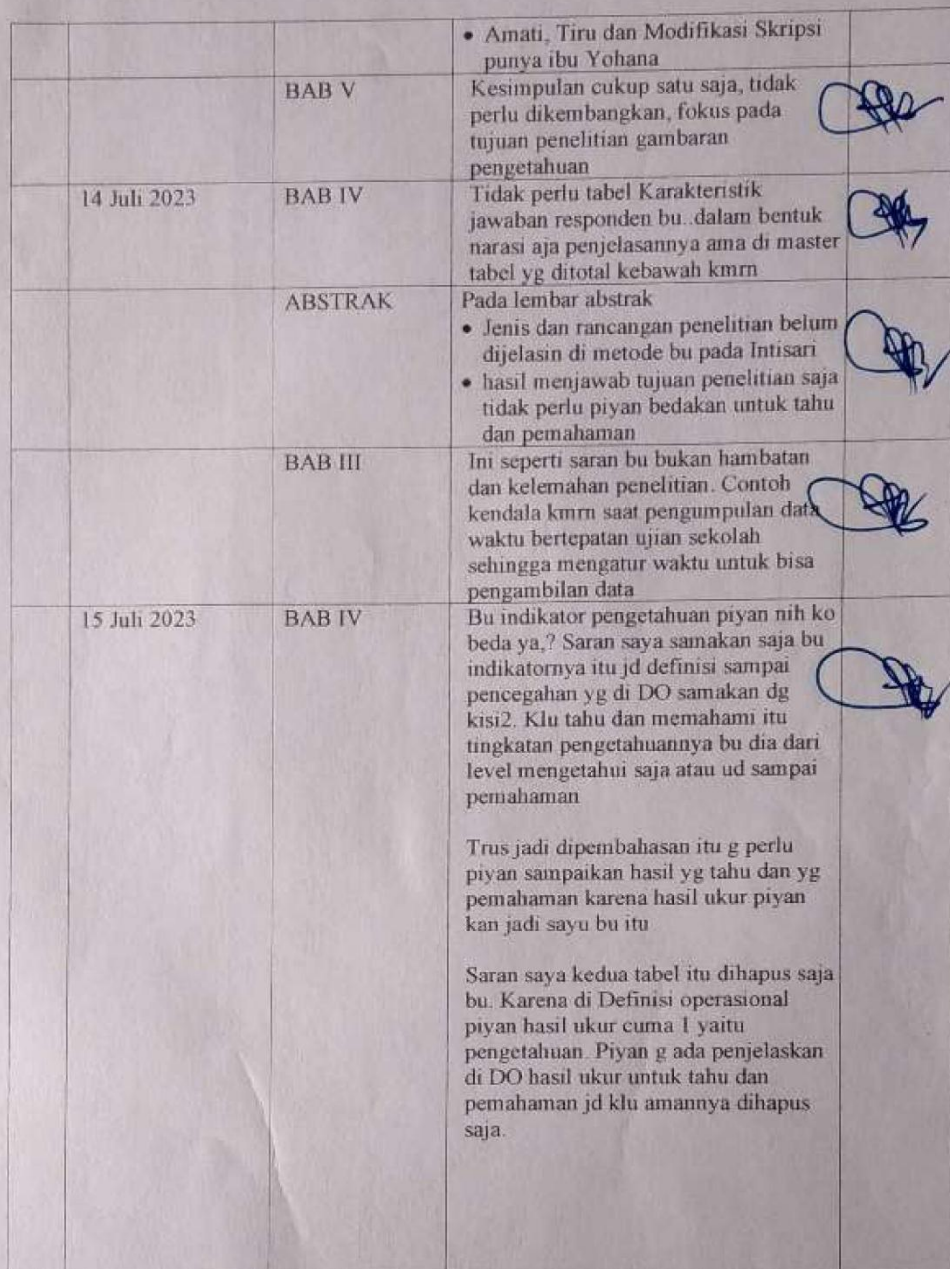 • Amati, Tiru dan Modifikasi Skripsi
punya ibu Yohana
BAB V
Kesimpulan cukup satu saja, tidak
perlu dikembangkan, fokus pada
tujuan penelitian gambaran
pengetahuan
14 Juli 2023
BAB IV
Tidak perlu tabel Karakteristik
jawaban responden bu..dalam bentuk
narasi aja penjelasannya ama di master
tabel yg ditotal kebawah kmrn
ABSTRAK
Pada lembar abstrak
• Jenis dan rancangan penelitian belum
dijelasin di metode bu pada Intisari
• hasil menjawab tujuan penelitian saja
tidak perlu piyan bedakan untuk tahu
dan pemahaman
BAB III
Ini seperti saran bu bukan hambatan
dan kelemahan penelitian. Contoh
kendala kmrn saat pengumpulan data
waktu bertepatan ujian sekolah
sehingga mengatur waktu untuk bisa
pengambilan data
15 Juli 2023
BAB IV
Bu indikator pengetahuan piyan nih ko
beda ya,? Saran saya samakan saja bu
indikatornya itu jd definisi sampai
pencegahan yg di DO samakan dg
kisi2. Klu tahu dan memahami itu
tingkatan pengetahuannya bu dia dari
level mengetahui saja atau ud sampai
pemahaman
Trus jadi dipembahasan itu g perlu
piyan sampaikan hasil yg tahu dan yg
pemahaman karena hasil ukur piyan
kan jadi sayu bu itu
Saran saya kedua tabel itu dihapus saja
bu. Karena di Definisi operasional
piyan hasil ukur cuma 1 yaitu
pengetahuan. Piyan g ada penjelaskan
di DO hasil ukur untuk tahu dan
pemahaman jd klu amannya dihapus
saja.